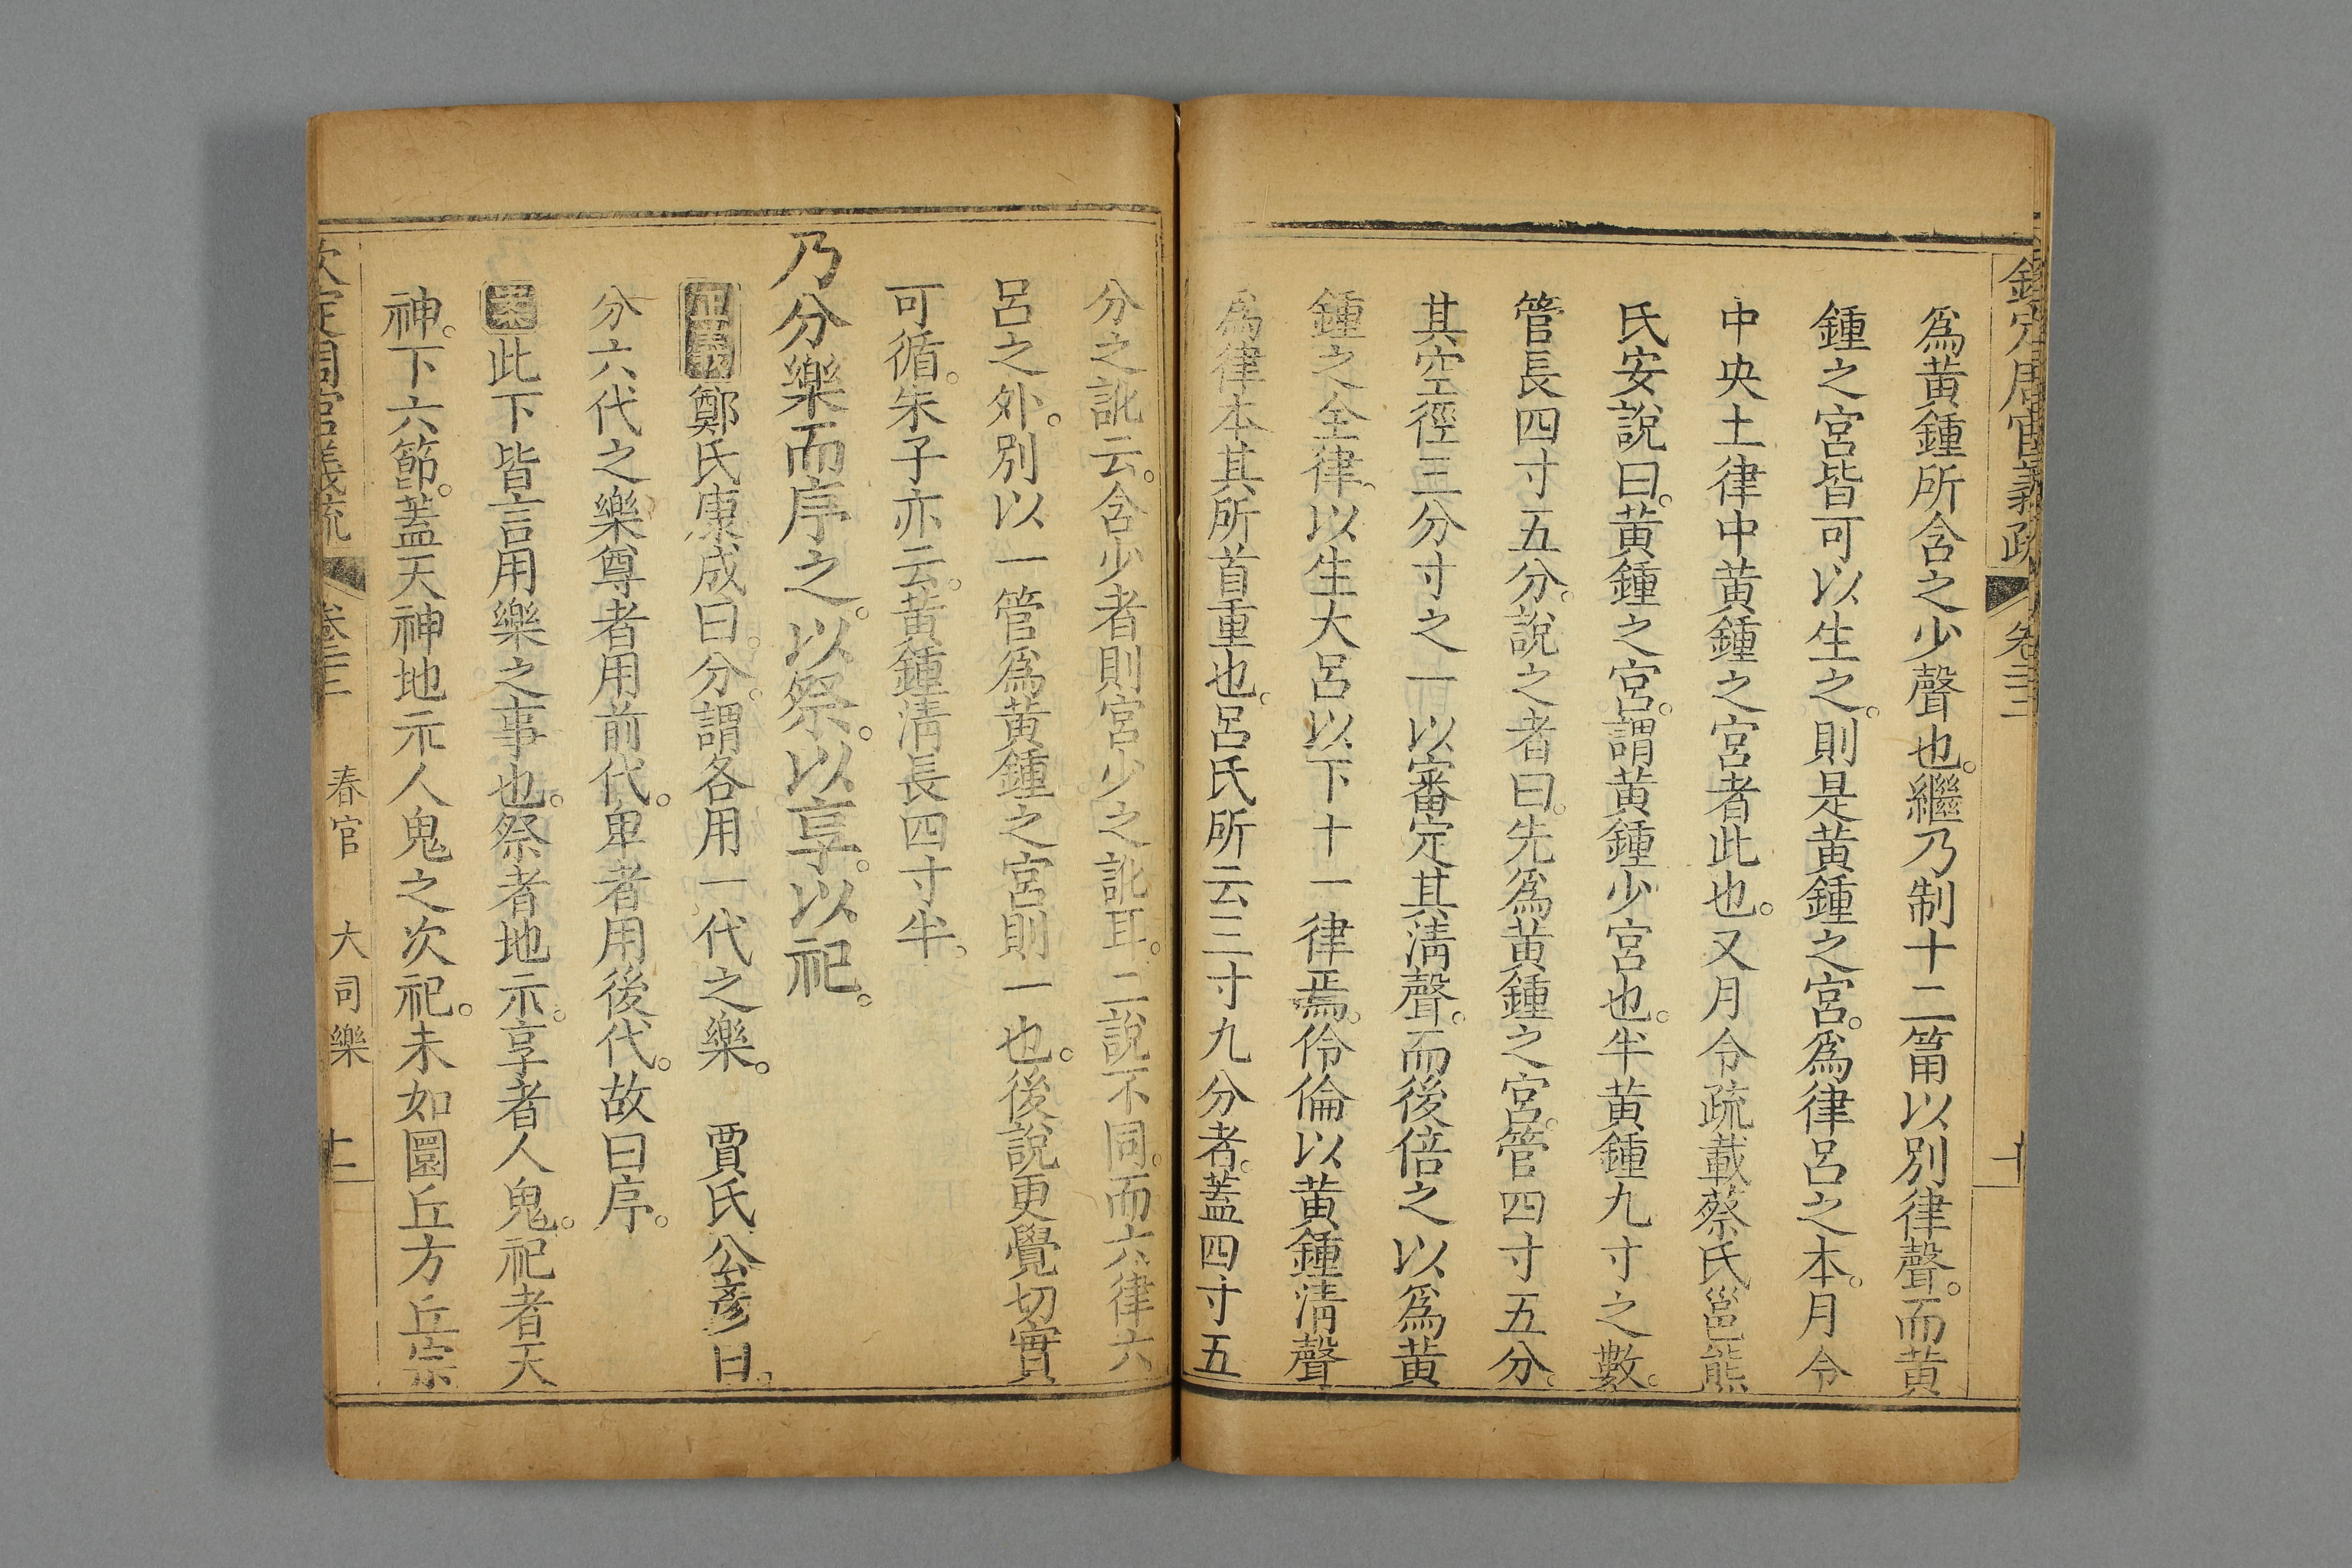 欽定周官義疏 卷二十二 十
爲黃鍾所含之少聲也。繼乃制十二筩以別律聲。而黃
鍾之宮皆可以生之。則是黃鍾之宮。爲律呂之本。月令
中央土律中黃鍾之宮者此也。又月令疏載蔡氏邕熊
氏安說曰。黃鍾之宮。謂黃鍾少宮也。半黃鍾九寸之數。
管長四寸五分。說之者曰。先爲黃鍾之宮。管四寸五分。
其空徑三分寸之一以審定其淸聲。而後倍之以爲黃
鍾之全律。以生大呂以下十一律焉。伶倫以黃鍾淸聲
爲律本其所首重也。呂氏所云三寸九分者。蓋四寸五
分之訛云。含少者則宮少之訛耳。二說不同。而六律六
呂之外。別以一管爲黃鍾之宮則一也。後說更覺切實
可循。朱子亦云。黃鍾淸長四寸半。
乃分樂而序之。以祭。以享。以祀。
正義鄭氏康成曰。分。謂各用一代之樂。 賈氏公彥曰。
分六代之樂尊者用前代。卑者用後代。故曰序。
案此下皆言用樂之事也。祭者地示。享者人鬼。祀者天
神。下六節。蓋天神地示人鬼之次祀。未如圜丘方丘宗
欽定周官義疏 卷二十二 春官 大司樂 十一